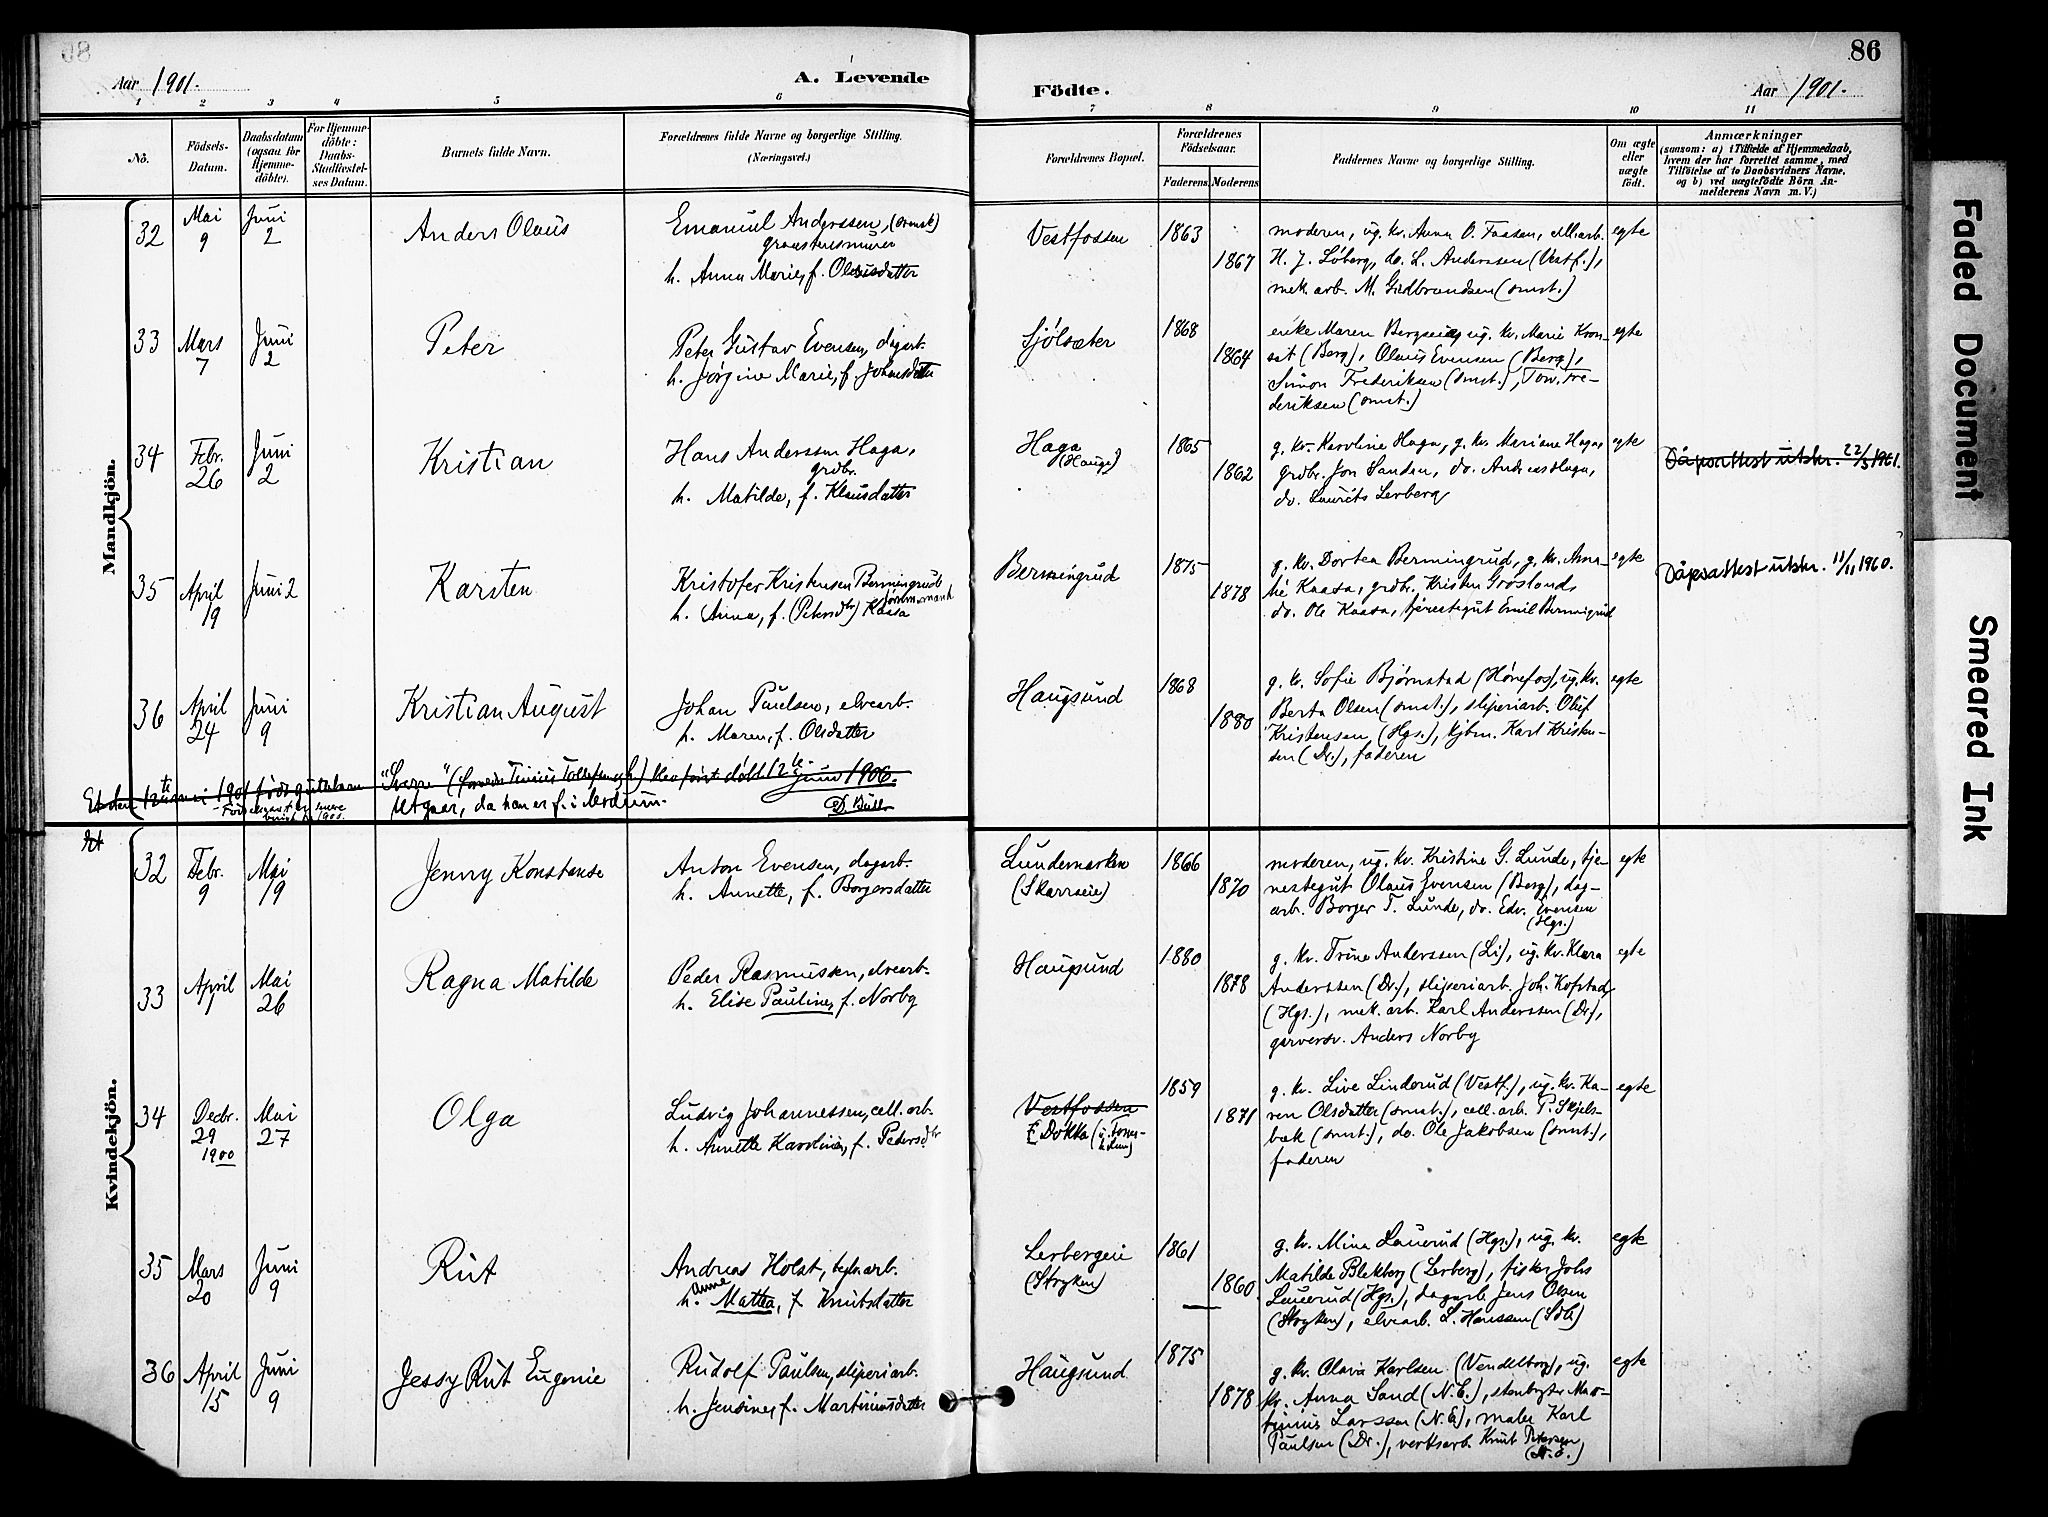 86
Aar 1901.
A. Levende
Födte.
Aar 1901.
1 2 3 4 5 6 7 8 9 10 11
No.
Födsels-
Datum.
Daabsdatum
(ogsaa for
Hjemme-
döbte).
For Hjemme-
döbte:
Daabs-
Stadfæstel-
ses Datum.
Barnets fulde Navn.
Forældrenes fulde Navne og borgerlige Stilling.
(Næringsvei.)
Forældrenes Bopæl.
Forældrenes
Födselsaar.
Faderens. Moderens.
Faddernes Navne og borgerlige Stilling.
Om ægte
eller
uægte
födt.
Anmærkninger
(saasom: a) i Tilfælde af Hjemmedaab,
hvem der har forrettet samme, med
Tilföielse af to Daabsvidners Navne,
og b) ved uægtefödte Börn An-
melderens Navn m. V.)
Mandkjön.
32 Mai 9 Juni 2 Anders Olaus
Emanuel Anderssen, (svensk)
graastensmurer
h. Anna Marie, f. Olausdatter
Vestfossen 1863 1867
moderen, ug. kv. Anna O. Faasen, cell.arb.
H. J. Löberg, do. L. Anderssen (Vestf.),
mek. arb. M. Gudbrandsen (smst.)
egte
33 Mars 7 Juni 2 Peter
Peter Gustav Evensen, dagarb.
h. Jörgine Marie, f. Johnsdatter
Sjölsæter 1868 1864
enke Maren Bergseie, ug. kv. Marie Kron-
set (Berg), Olaus Evensen (Berg),
Simon Frederiksen (smst.), Tom. Fre-
deriksen (smst.)
egte
34 Febr. 26 Juni 2 Kristian
Hans Anderssen Haga,
grdbr.
h. Matilde, f. Klausdatter
Haga
(Hauge)
1865 1862
g. kv. Karoline Haga, g. kv. Mariane Haga,
grdbr. Jon Sanden, do. Andreas Haga,
do. Laurits Lerberg
egte
Dåpsattest utskr. 22/3 1961.
35 April 19 Juni 2 Karsten
Kristofer Kristensen Bermingrud
tömmermand
h. Anna, f. (Petersdtr) Kaasa
Bermingrud 1875 1878
g. kv. Dortea Bermingrud, g. kv. Ama-
lie Kaasa, grdbr. Kristen Grösland
do. Ole Kaasa, tjenestegut Emil Bermingrud
egte
Dåpsattest utskr. 11/11 1960.
36 April 24 Juni 9 Kristian August
Johan Paulsen, elvearb.
h. Maren, f. Olsdatter
Haugsund 1868 1880
g. kv. Sofie Björnstad (Hönefos), ug. kv.
Berta Olsen (smst.), sliperiarb. Oluf
Kristensen (Hgs.), kjbm. Karl Kristen-
sen (Dr.), faderen
egte
"Sverre"
Utgaar, da han er f. i Modum.
D. Buller
Kvindekjön.
32 Febr. 9 Mai 19 Jenny Konstanse
Anton Evensen, dagarb.
h. Annette, f. Borgersdatter
Lundemarken
(Skarseie)
1866 1870
moderen, ug. kv. Kristine G. Lunde, tje-
nestegut Olaus Evensen (Berg), dag-
arb. Borger T. Lunde, do. Edv. Evensen
(Hgs.)
egte
33 April 1 Mai 26 Ragna Matilde
Peder Rasmussen, elvearb.
h. Elise Pauline, f. Norby
Haugsund 1880 1878
g. kv. Trine Anderssen (Li), ug. kv. Klara
Anderssen (Dr.), sliperiarb. Joh. Kofstad,
(Hgs.), mek. arb. Karl Anderssen (Dr.),
garversv. Anders Norby
egte
34 Decbr. 29 1900 Mai 27 Olga
Ludvig Johannessen, cell. arb.
h. Annette Karoline, f. Petersdtr
Vestfossen
Dokka
1859 1871
g. kv. Live Linderud (Vestf.), ug. kv. Ka-
ren Olsdatter (smst.), cell. arb. P. Skjels-
bæk (smst.), do. Ole Jakobsen (smst.),
faderen
egte
35 Mars 20 Juni 9 Rut
Andreas Holst, teglv.arb.
Anne
h. Mathea, f. Knutsdatter
Lerbergeie
(Stryken)
1861 1860
g. kv. Mina Lauerud (Hgs.), ug. kv.
Matilde Blekberg (Lerberg), fisker Johs
Lauerud (Hgs.), dagarb. Jens Olsen
(Stryken), elvearb. L. Hanssen (Sdb.)
egte
36 April 15 Juni 9 Jessy Rut Eugenie
Rudolf Paulsen, sliperiarb.
h. Jensine, f. Martiniusdatter
Haugsund 1875 1878
g. kv. Olava Karlsen (Vendelborg), ug.
kv. Anna Sand (N.E.), stenhugger Mar-
tinius Larssen (N.E.), maler Karl
Paulsen (Dr.), verksarb. Knut Petersen
(N.E.)
egte
Faded Document
Smeared Ink